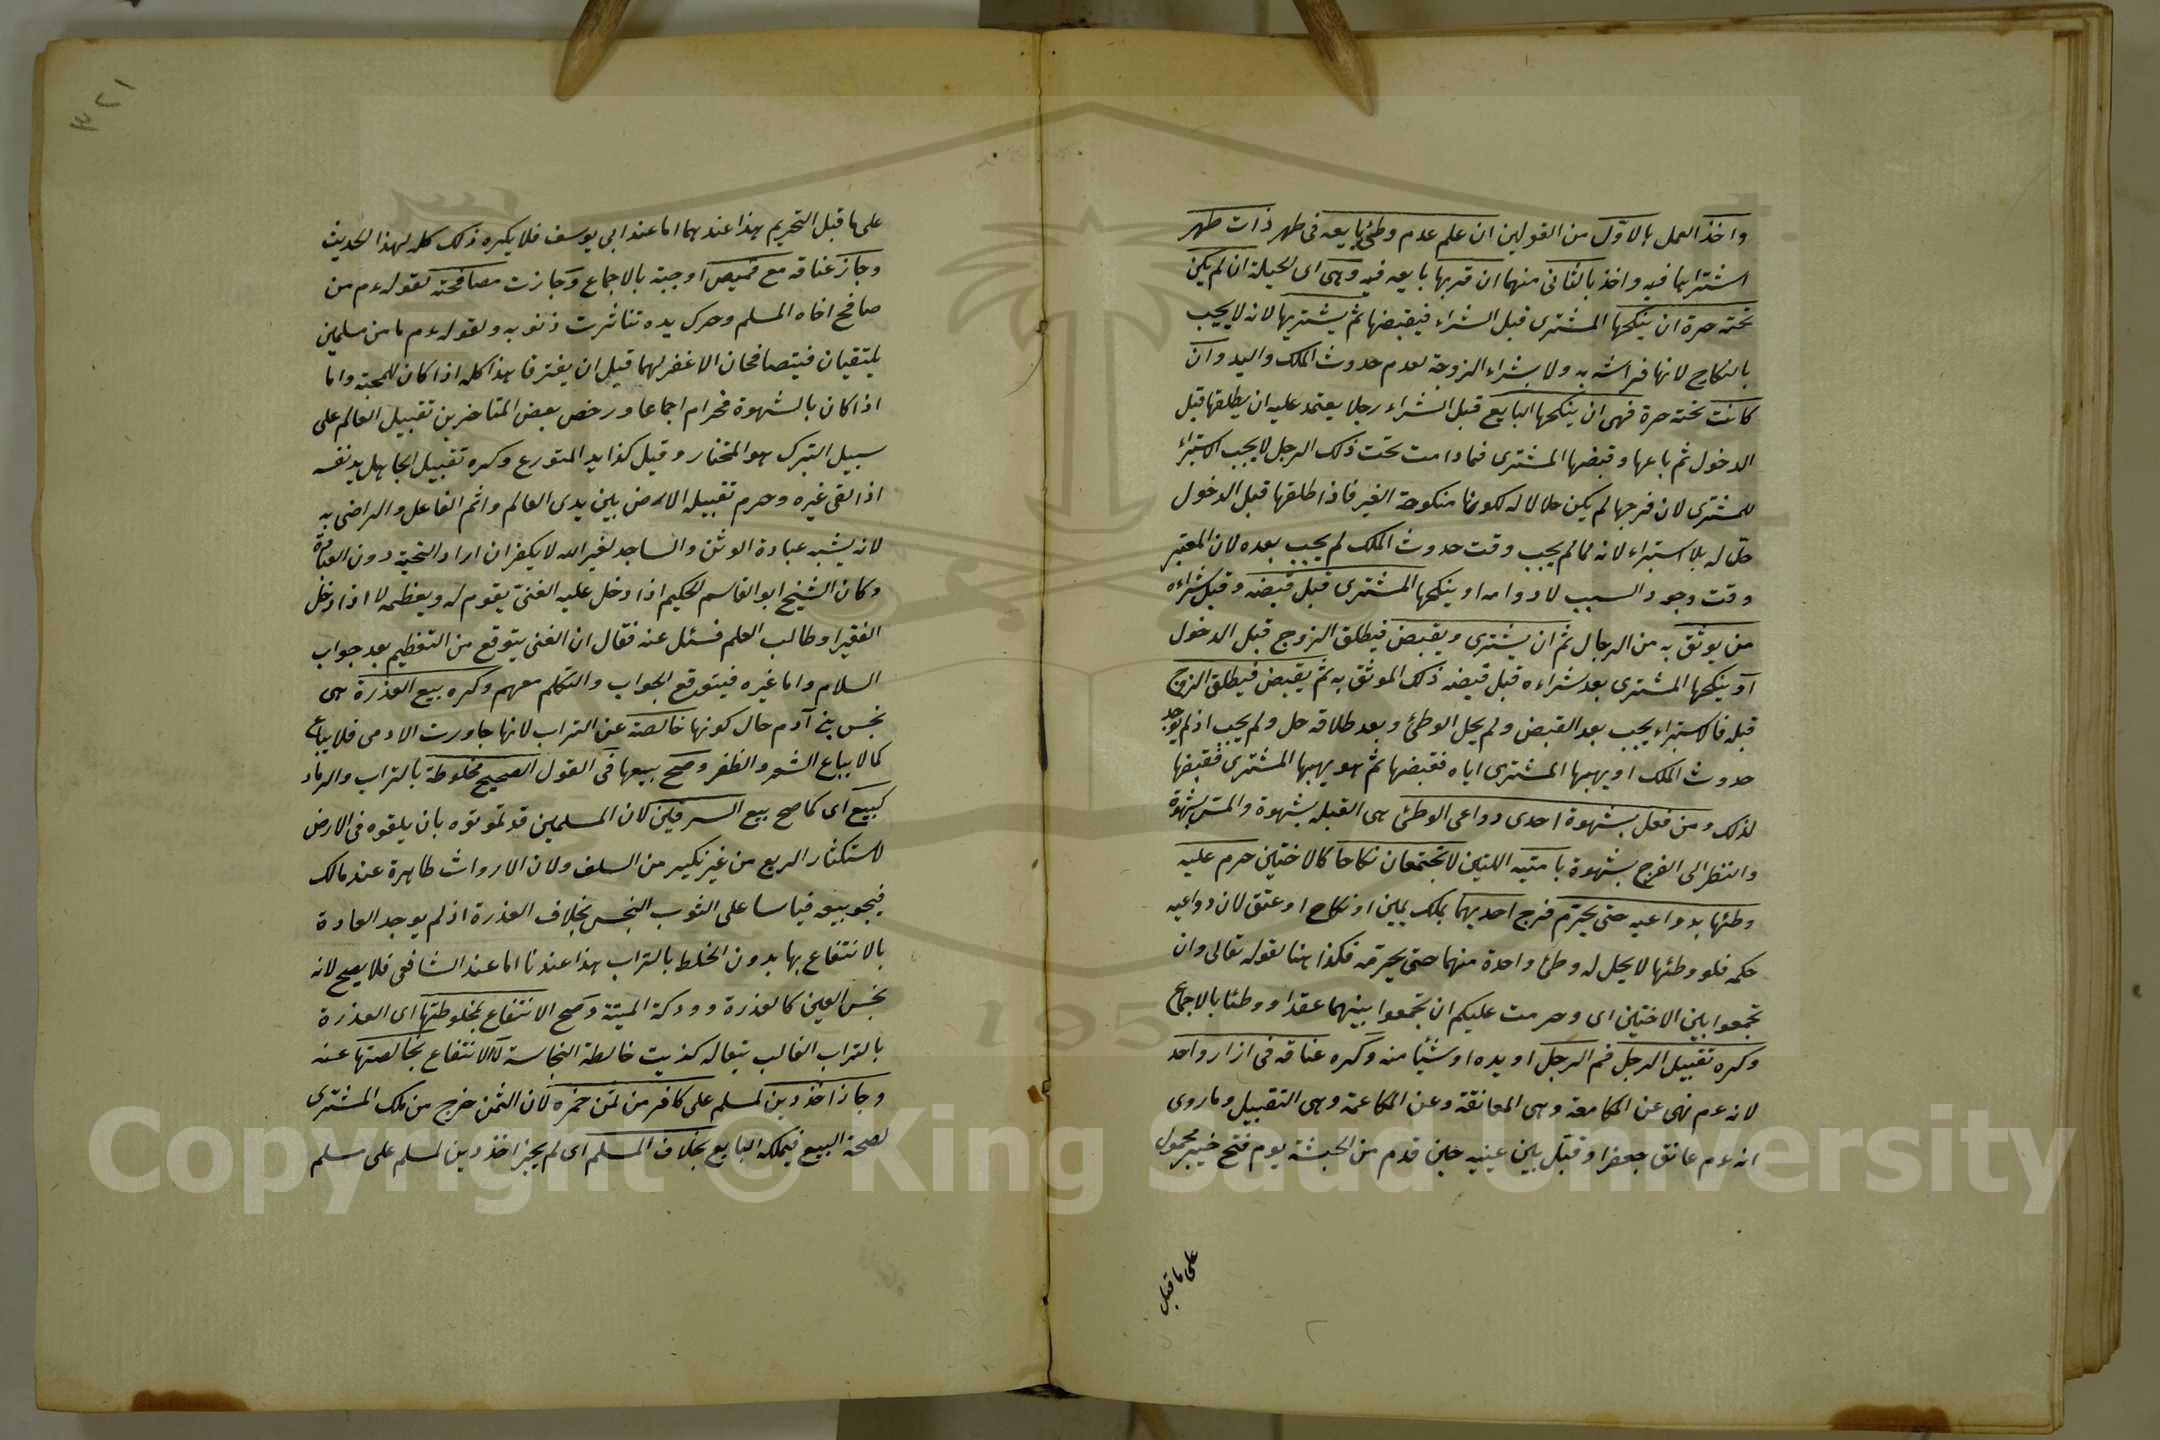 واخذ العمل بالاول من القولين ان علم عدم وطئ بايعه فى طهر ذات طهر
اشتراها فيه واخذ بالثانى منهما ان قربها بايعه فيه وهى اى الحيلة ان لم يكن
تحته حرة ان ينكحها المشترى قبل الشراء فيقبضها ثم يشتريها لانه لا يجب
بالنكاح لانها فراشه به ولا بشراء الزوجة لعدم حدوث الملك واليد وان
كانت تحته حرة فهى ان ينكحها البايع قبل الشراء رجلا يعتمد عليه ان يطلقها قبل
الدخول ثم باعها وقبضها المشترى فما دامت تحت ذلك الرجل لا يجب استبراء
للمشترى لان فرجها لم يكن حلالا له لكونها منكوحة الغير فاذا طلقها قبل الدخول
حل له بلا استبراء لانه لما لم يجب وقت حدوث الملك لم يجب بعده لان المعتبر
وقت وجود السبب لا دوامه او ينكحها المشترى قبل قبضه وقبل شرائه
من يوثق به من الرجال ثم ان يشترى ويقبض فيطلق الزوج قبل الدخول
او ينكحها المشترى بعد شراءه قبل قبضه ذلك الموثق به ثم يقبض فيطلق الزوج
قبله فالاستبراء يجب بعد القبض ولم يحل الوطئ وبعد طلاقه حل ولم يجب اذ لم يوجد
حدوث الملك او يهبها المشترى اياه فقبضها ثم هو يهبها المشترى فقبضها
لذلك ومن فعل بشهوة احدى دواعى الوطئ هى القبلة بشهوة والمس بشهوة
والنظر الى الفرج بشهوة بامتيه اللتين لا تجتمعان نكاحا كالاختين حرم عليه
وطئها بدواعيه حتى يحرم فرج احديهما بملك يمين او نكاح او عتق لان دواعيه
حكمه فلو وطئها لا يحل له وطئ واحدة منهما حتى يحرمه فكذا هنا لقوله تعالى وان
تجمعوا بين الاختين اى وحرمت عليكم ان تجمعوا بينهما عقدا ووطئا بالاجماع
وكره تقبيل الرجل فم الرجل او يده او شيئا منه وكره عناقه فى ازار واحد
لانه عم نهى عن المكامعة وهى المعانقة وعن المكاعمة وهى التقبيل وما روى
انه عم عانق جعفرا وقبل بين عينيه حين قدم من الحبشة يوم فتح خيبر محمول
على ما قبل
٣٢١
على ما قبل التحريم هذا عندهما اما عند ابى يوسف فلا يكره ذلك كله لهذا الحديث
وجاز عناقه مع قميص او جبة بالاجماع وجازت مصافحته لقوله عم من
صافح اخاه المسلم وحرك يده تناثرت ذنوبه ولقوله عم ما من مسلمين
يلتقيان فيتصافحان الا غفر لهما قبل ان يفترقا هذا كله اذا كان للمحبة واما
اذا كان بالشهوة فحرام اجماعا ورخص بعض المتاخرين تقبيل العالم على
سبيل التبرك هو المختار وقيل كذا يد المتورع وكره تقبيل الجاهل يد نفسه
اذا لقى غيره وحرم تقبيله الارض بين يدى العالم واثم الفاعل والراضى به
لانه يشبه عبادة الوثن والساجد لغير الله لا يكفر ان اراد التحية دون العبادة
وكان الشيخ ابو القاسم الحكيم اذا دخل عليه الغنى يقوم له ويعظمه لا اذا دخل
الفقير او طالب العلم فسئل عنه فقال ان الغنى يتوقع من التعظيم بعد جواب
السلام واما غيره فيتوقع الجواب والتكلم معهم وكره بيع العذرة هى
نجس بنى آدم حال كونها خالصة عن التراب لانها جاورت الادمى فلا يباع
كما لا يباع الشعر والظفر وصح بيعها فى القول الصحيح مخلوطة بالتراب والرماد
كبيع اى كما صح بيع السرقين لان المسلمين قد تمونوه بان يلقوه فى الارض
لاستكثار الريع من غير نكير من السلف ولان الارواث طاهرة عند مالك
فيجو بيعه قياسا على الثوب النجس بخلاف العذرة اذ لم يوجد العادة
بالانتفاع بها بدون الخلط بالتراب هذا عندنا اما عند الشافعى فلا يصح لانه
نجس العين كالعذرة وودكة الميتة وصح الانتفاع بمخلوطتها اى العذرة
بالتراب الغالب بتعاله كزيت خالطه النجاسة لا الانتفاع بخالصتها عنه
وجاز اخذ دين لمسلم على كافر من ثمن خمره لان الثمن خرج من ملك المشترى
لصحة البيع فيملكه البايع بخلاف المسلم اى لم يجز اخذ دين لمسلم على مسلم
Copyright © King Saud University
1957